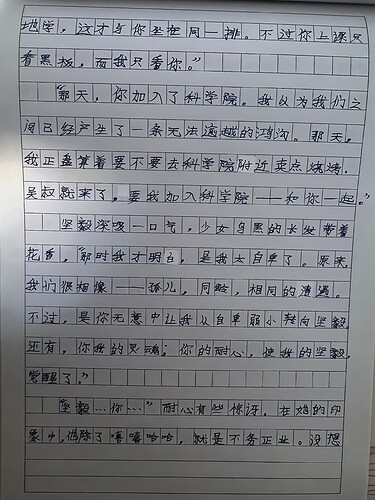 地学，这才与你坐在同一排。不过你上课只
看黑板，而我只看你。”
“那天，你加入了科学院。我以为我们之
间已经产生了一条无法逾越的鸿沟。那天，
我正盘算着要不要去科学院附近卖点烧烤，
吴叔就来了，要我加入科学院——和你一起。”
坚毅深吸一口气，少女乌黑的长发带着
花香，“那时我才明白，是我太自卑了。原来
我们很相像——孤儿，同龄，相同的遭遇。
不过，是你无意中让我从自卑弱小转向坚毅，
还有，你我的灵魂，你的耐心，使我的坚毅，
觉醒了。”
“坚毅…你…”耐心有些惊讶，在她的印
象中，他除了嘻嘻哈哈，就是不务正业。没想